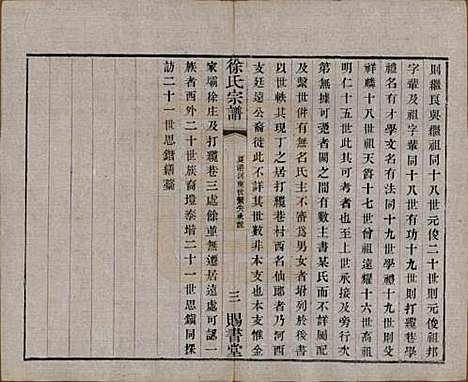 則繼良與繼祖同十八世元俊二十世則元俊祖邦
字輩及祖字輩同十八世有功十九世則打纜巷學
禮名有才學文名有法同十九世學禮十九世
祥麟二十一世紹祖天爵十七世曾祖遠耀十六世高祖
明仁十五世世系朗然可以據此直下承接及旁行次
第無據可堯者闕之間有以數主書某氏而不詳屬配
及繫世併有名氏主不審為男女者坿列於後書
以世軼其現丁之居打纜巷村西名仙郎者乃河西
支廷遠公裔徙此不詳其世數非本支本支惟金
家壩徐庄及打纜巷三處餘並無遷居遠方可認一
族者西外二十世族裔壇泰堦二十一世思鑽同採
訪二十一世思鐕繕藁
徐氏宗譜
三
賜書堂